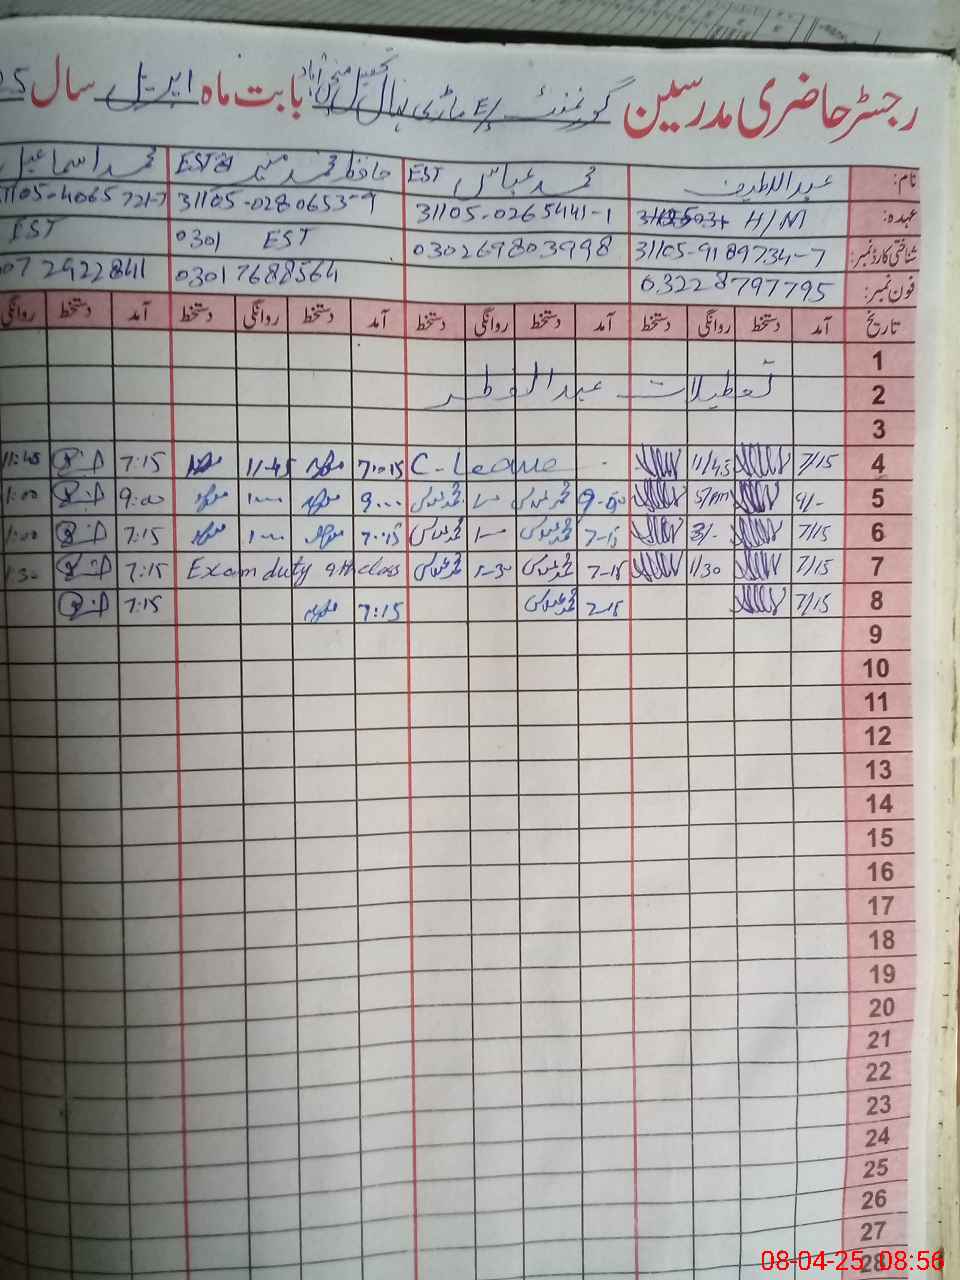 رجسٹر حاضری مدرسین گورنمنٹ E/S ماڑی تحصیل منچن آباد بابت ماہ اپریل سال
نام: عبداللطیف محمد عباس EST حافظ محمد منیر EST محمد اسماعیل
عہدہ: H/M 31105-0265441-1 31105-0280653-9 31105-4065721-7
شناختی کارڈ نمبر: 31105-9189734-7 030269803998 0301 EST EST
فون نمبر: 03228797795 03017688564 07 2922841
تاریخ آمد دستخط روانگی دستخط آمد دستخط روانگی دستخط آمد دستخط روانگی دستخط آمد دستخط روانگی
1
2 تعطیلات عیدالفطر
3
4 7/15 11/45 C-Leave 7:15 11-45 7:15 11:45
5 9/- 5/PM 9-00 1- 9... 1... 9:00 1:00
6 7/15 3/- 7-15 1- 7:15 1... 7:15 1:00
7 7/15 1/30 7-15 1-30 Exam duty 9th class 7:15 1:30
8 7/15 7-15 7:15 7:15
9
10
11
12
13
14
15
16
17
18
19
20
21
22
23
24
25
26
27
28
08-04-25 08:56